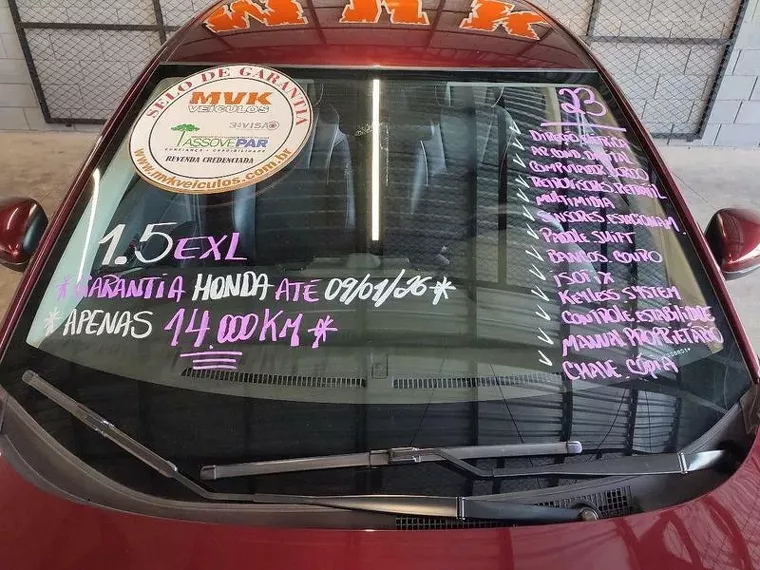 MVK
SELO DE GARANTIA
MVK
VEÍCULOS
VISA
ASSOVEPAR
CONFIANÇA • CREDIBILIDADE
REVENDA CREDENCIADA
www.mkveiculos.com.br
1.5 EXL
*GARANTIA HONDA ATÉ 09/01/26*
*APENAS 14.000KM*
23
DIREÇÃO ELÉTRICA
AR COND. DIGITAL
COMPUTADOR BORDO
RETROVISORES RETRÁTIL
MULTIMIDIA
SENSORES ESTACIONAM.
PADDLE SHIFT
BANCOS COURO
ISOFIX
KEYLESS SYSTEM
CONTROLE ESTABILIDADE
MANUAL PROPRIETÁRIO
CHAVE CÓPIA